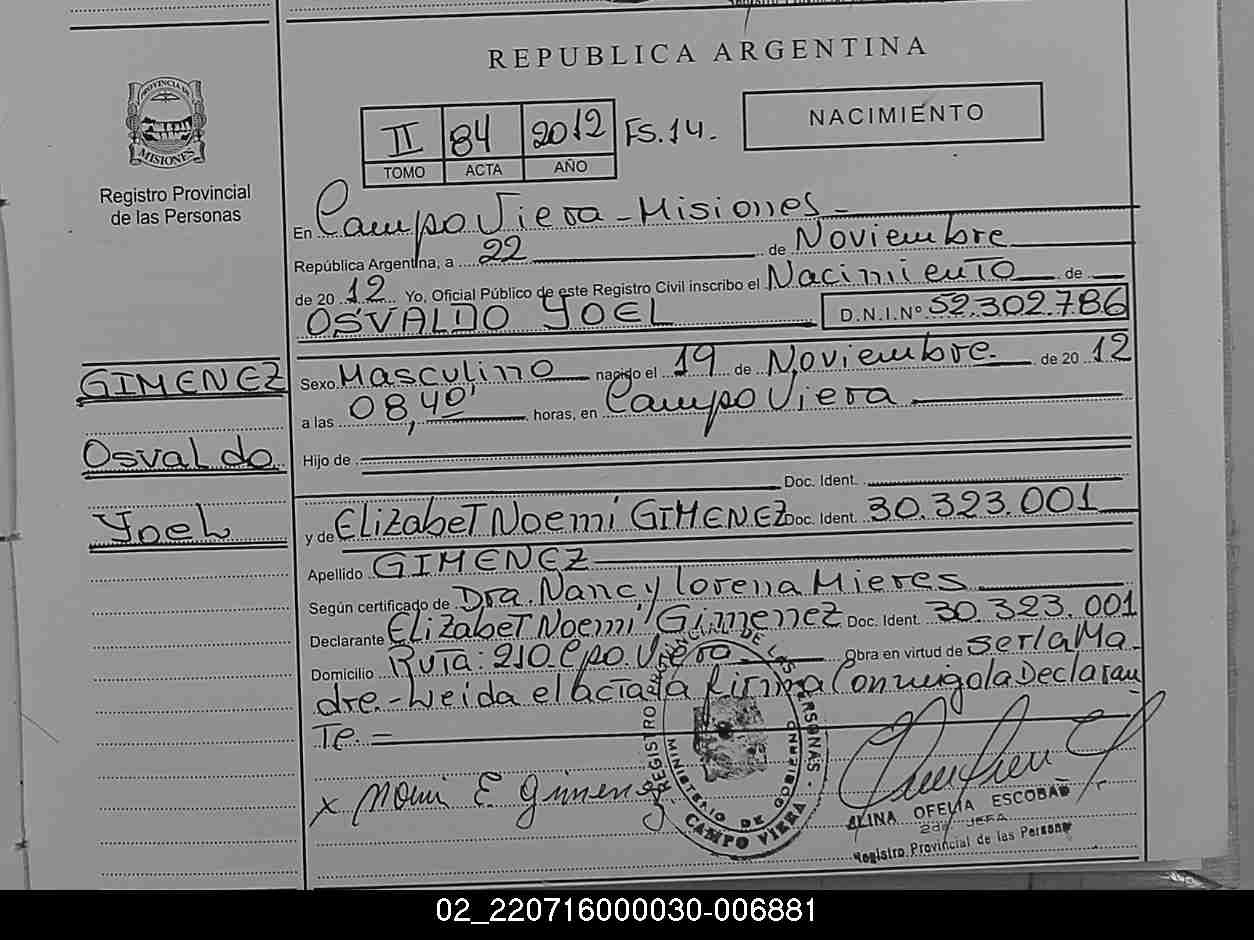 REPUBLICA ARGENTINA
PROVINCIA DE
MISIONES
Registro Provincial
de las Personas
II 84 2012 FS.14.
TOMO ACTA AÑO
NACIMIENTO
En Campo Viera - Misiones -
República Argentina, a 22 de Noviembre
de 20 12 Yo, Oficial Público de este Registro Civil inscribo el Nacimiento de
OSVALDO YOEL D.N.I.Nº 52.302.786
GIMENEZ
Osvaldo
Yoel
Sexo Masculino nacido el 19 de Noviembre de 20 12
a las 08,40' horas, en Campo Viera
Hijo de
Doc. Ident.
y de Elizabet Noemi GIMENEZ Doc. Ident. 30.323.001
Apellido GIMENEZ
Según certificado de Dra. Nancy Lorena Mieres
Declarante Elizabet Noemi Gimenez Doc. Ident. 30.323.001
Domicilio Ruta: 210. Cpo. Viera Obra en virtud de ser la Ma
dre.- Leida el acta la firma Conmigo la Declaran
Te.-
x Nomi E Gimenez
REGISTRO PROVINCIAL DE LAS PERSONAS
MINISTERIO DE GOBIERNO
CAMPO VIERA
ALINA OFELIA ESCOBAR
2da JEFA
Registro Provincial de las Personas
02_220716000030-006881